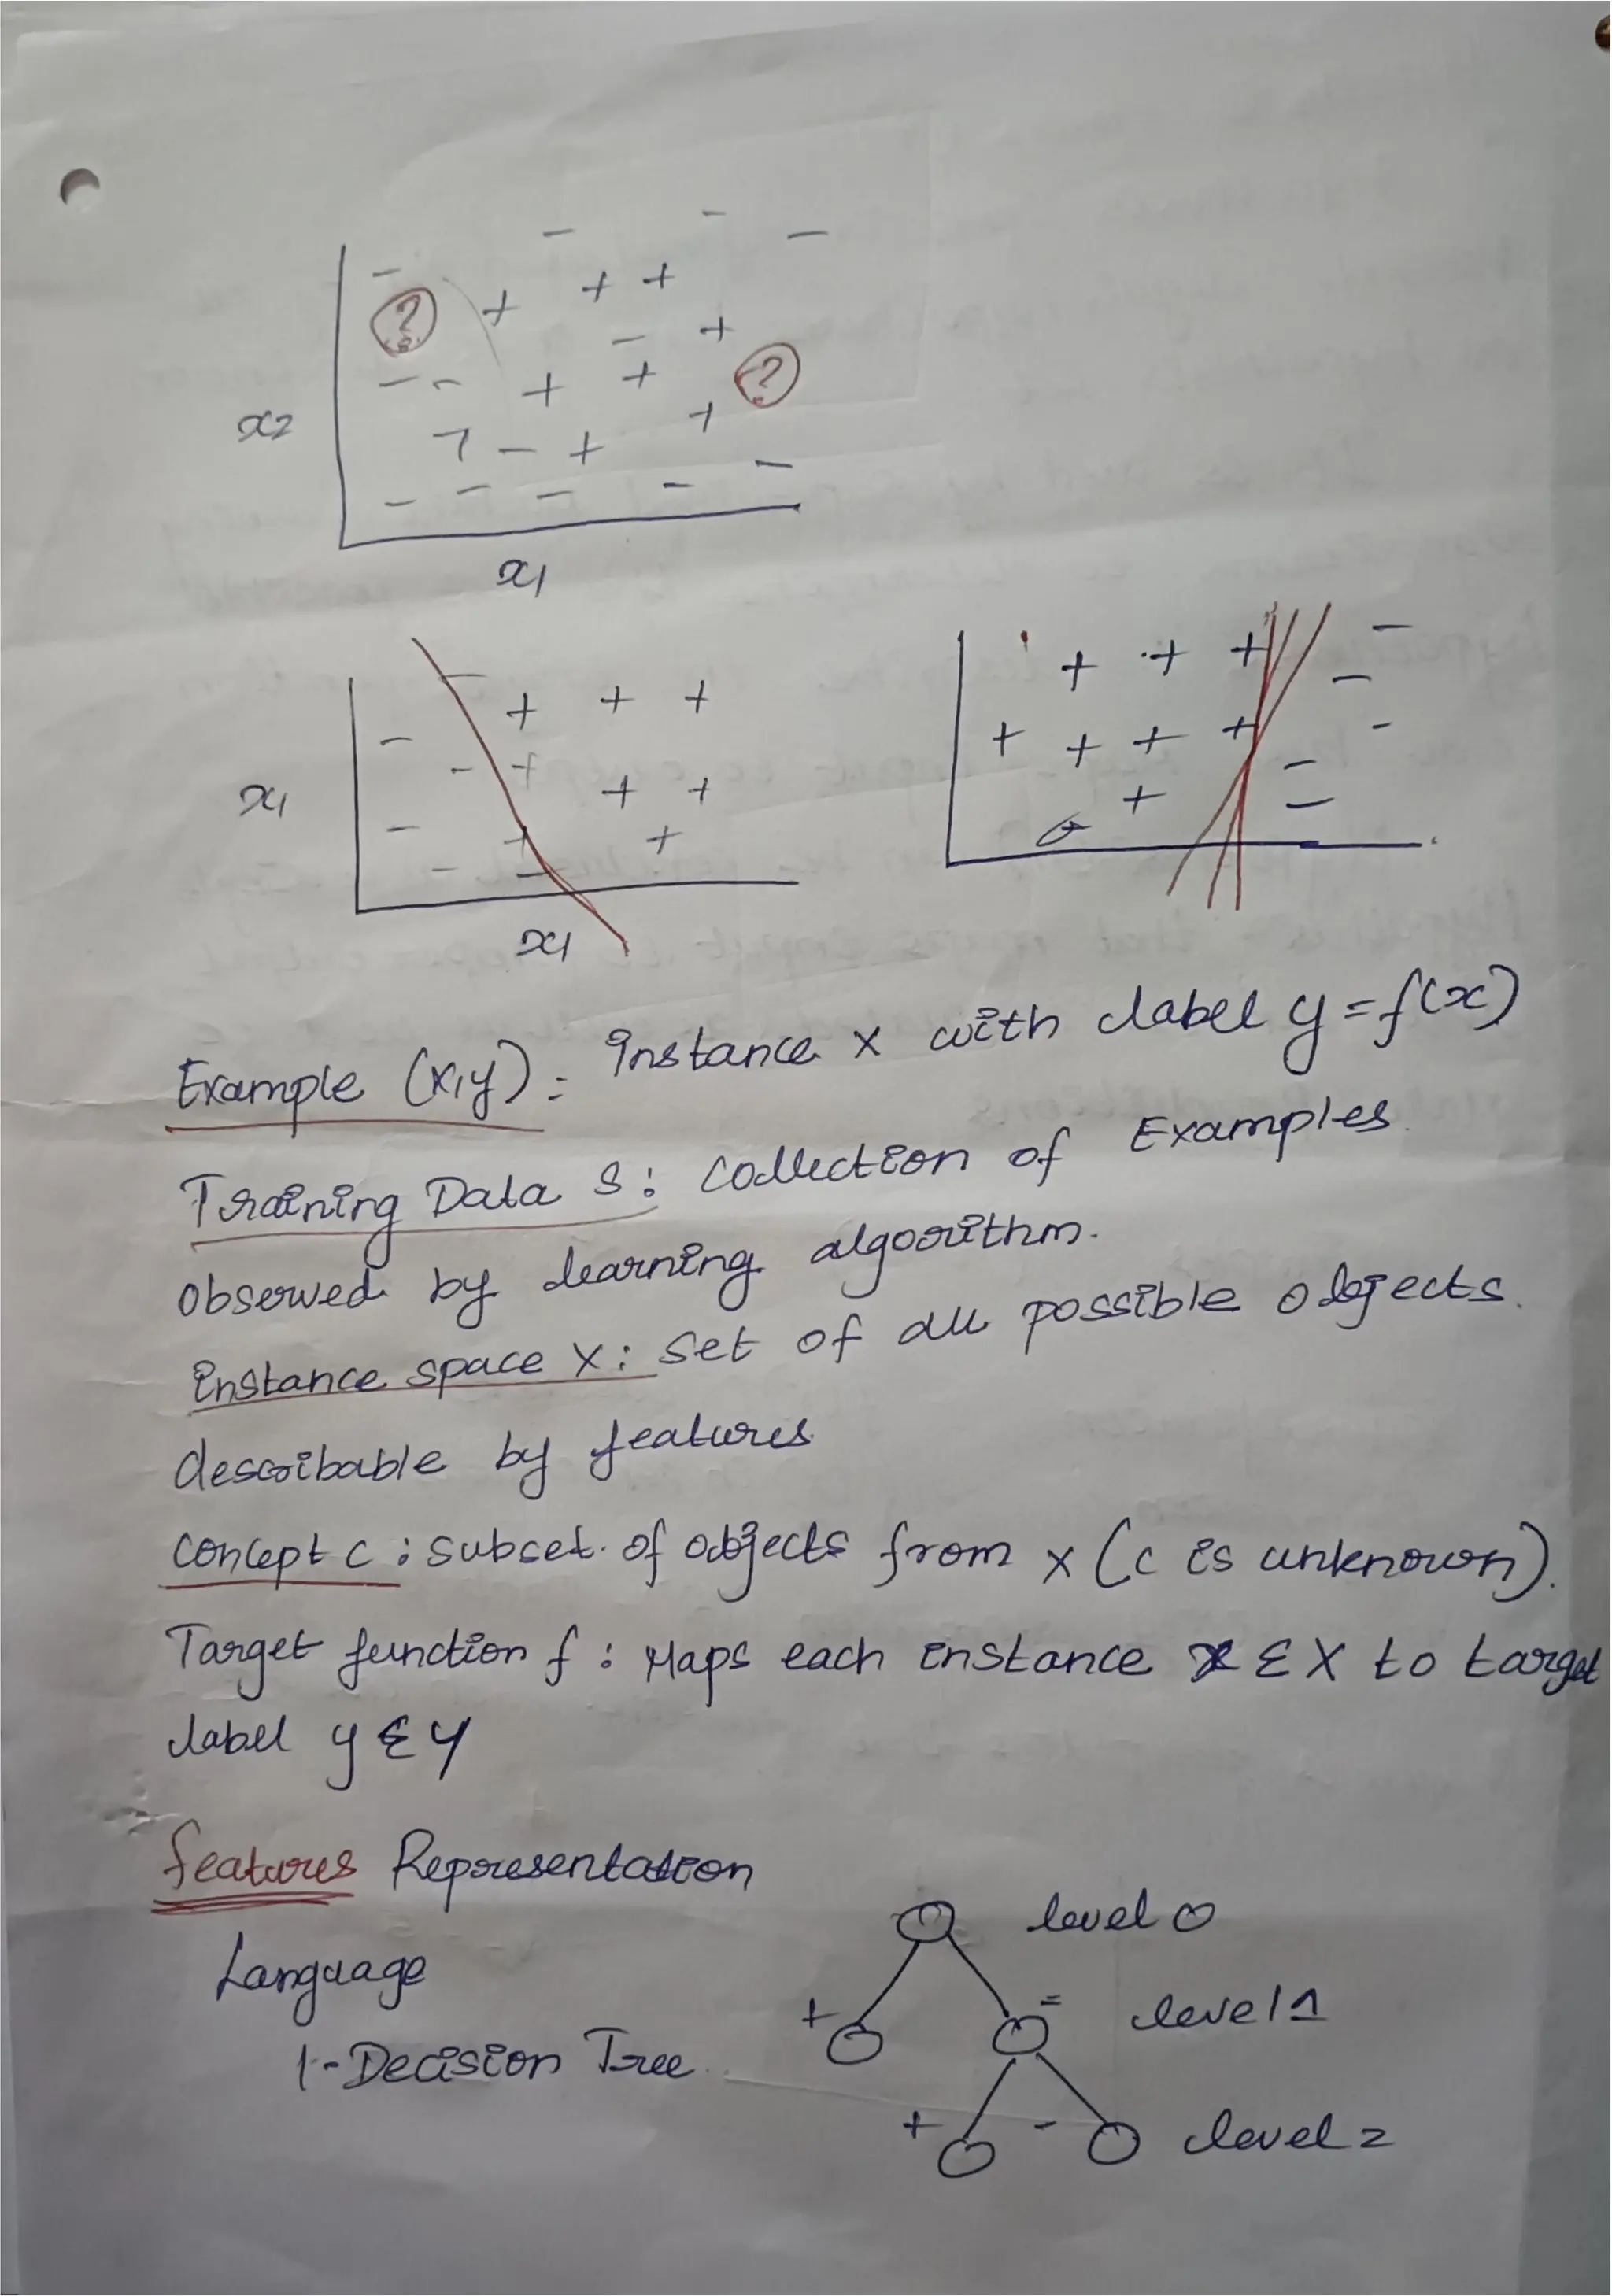 x2
x1
x1
x1
Example (x,y): Instance x with label y = f(x)
Training Data S: Collection of Examples
observed by learning algorithm.
Instance space X: Set of all possible objects.
describable by features
Concept c: subset of objects from x (c is unknown).
Target function f: Maps each instance x ∈ X to target
label y ∈ Y
features Representation
Language
1-Decision Tree
level 0
+ = level 1
+ - level 2